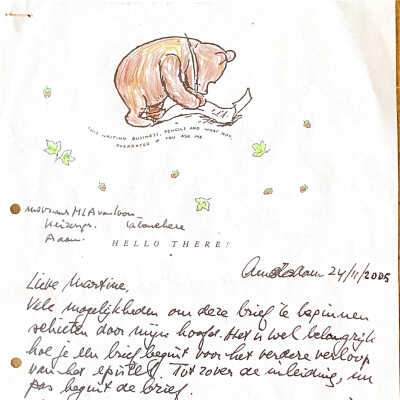 THIS WRITING BUSINESS, PENCILS AND WHAT NOT,
OVERRATED IF YOU ASK ME
mevrouw MLA van Loon
Keizersgr.
A'dam
HELLO THERE!
Amsterdam 24/11/2005
Lieve Martine,
Vele mogelijkheden om deze brief te beginnen
schieten door mijn hoofd. Het is wel belangrijk
hoe je een brief begint voor het verdere verloop
van het epistel. Tot zover de inleiding, nu
pas begint de brief.